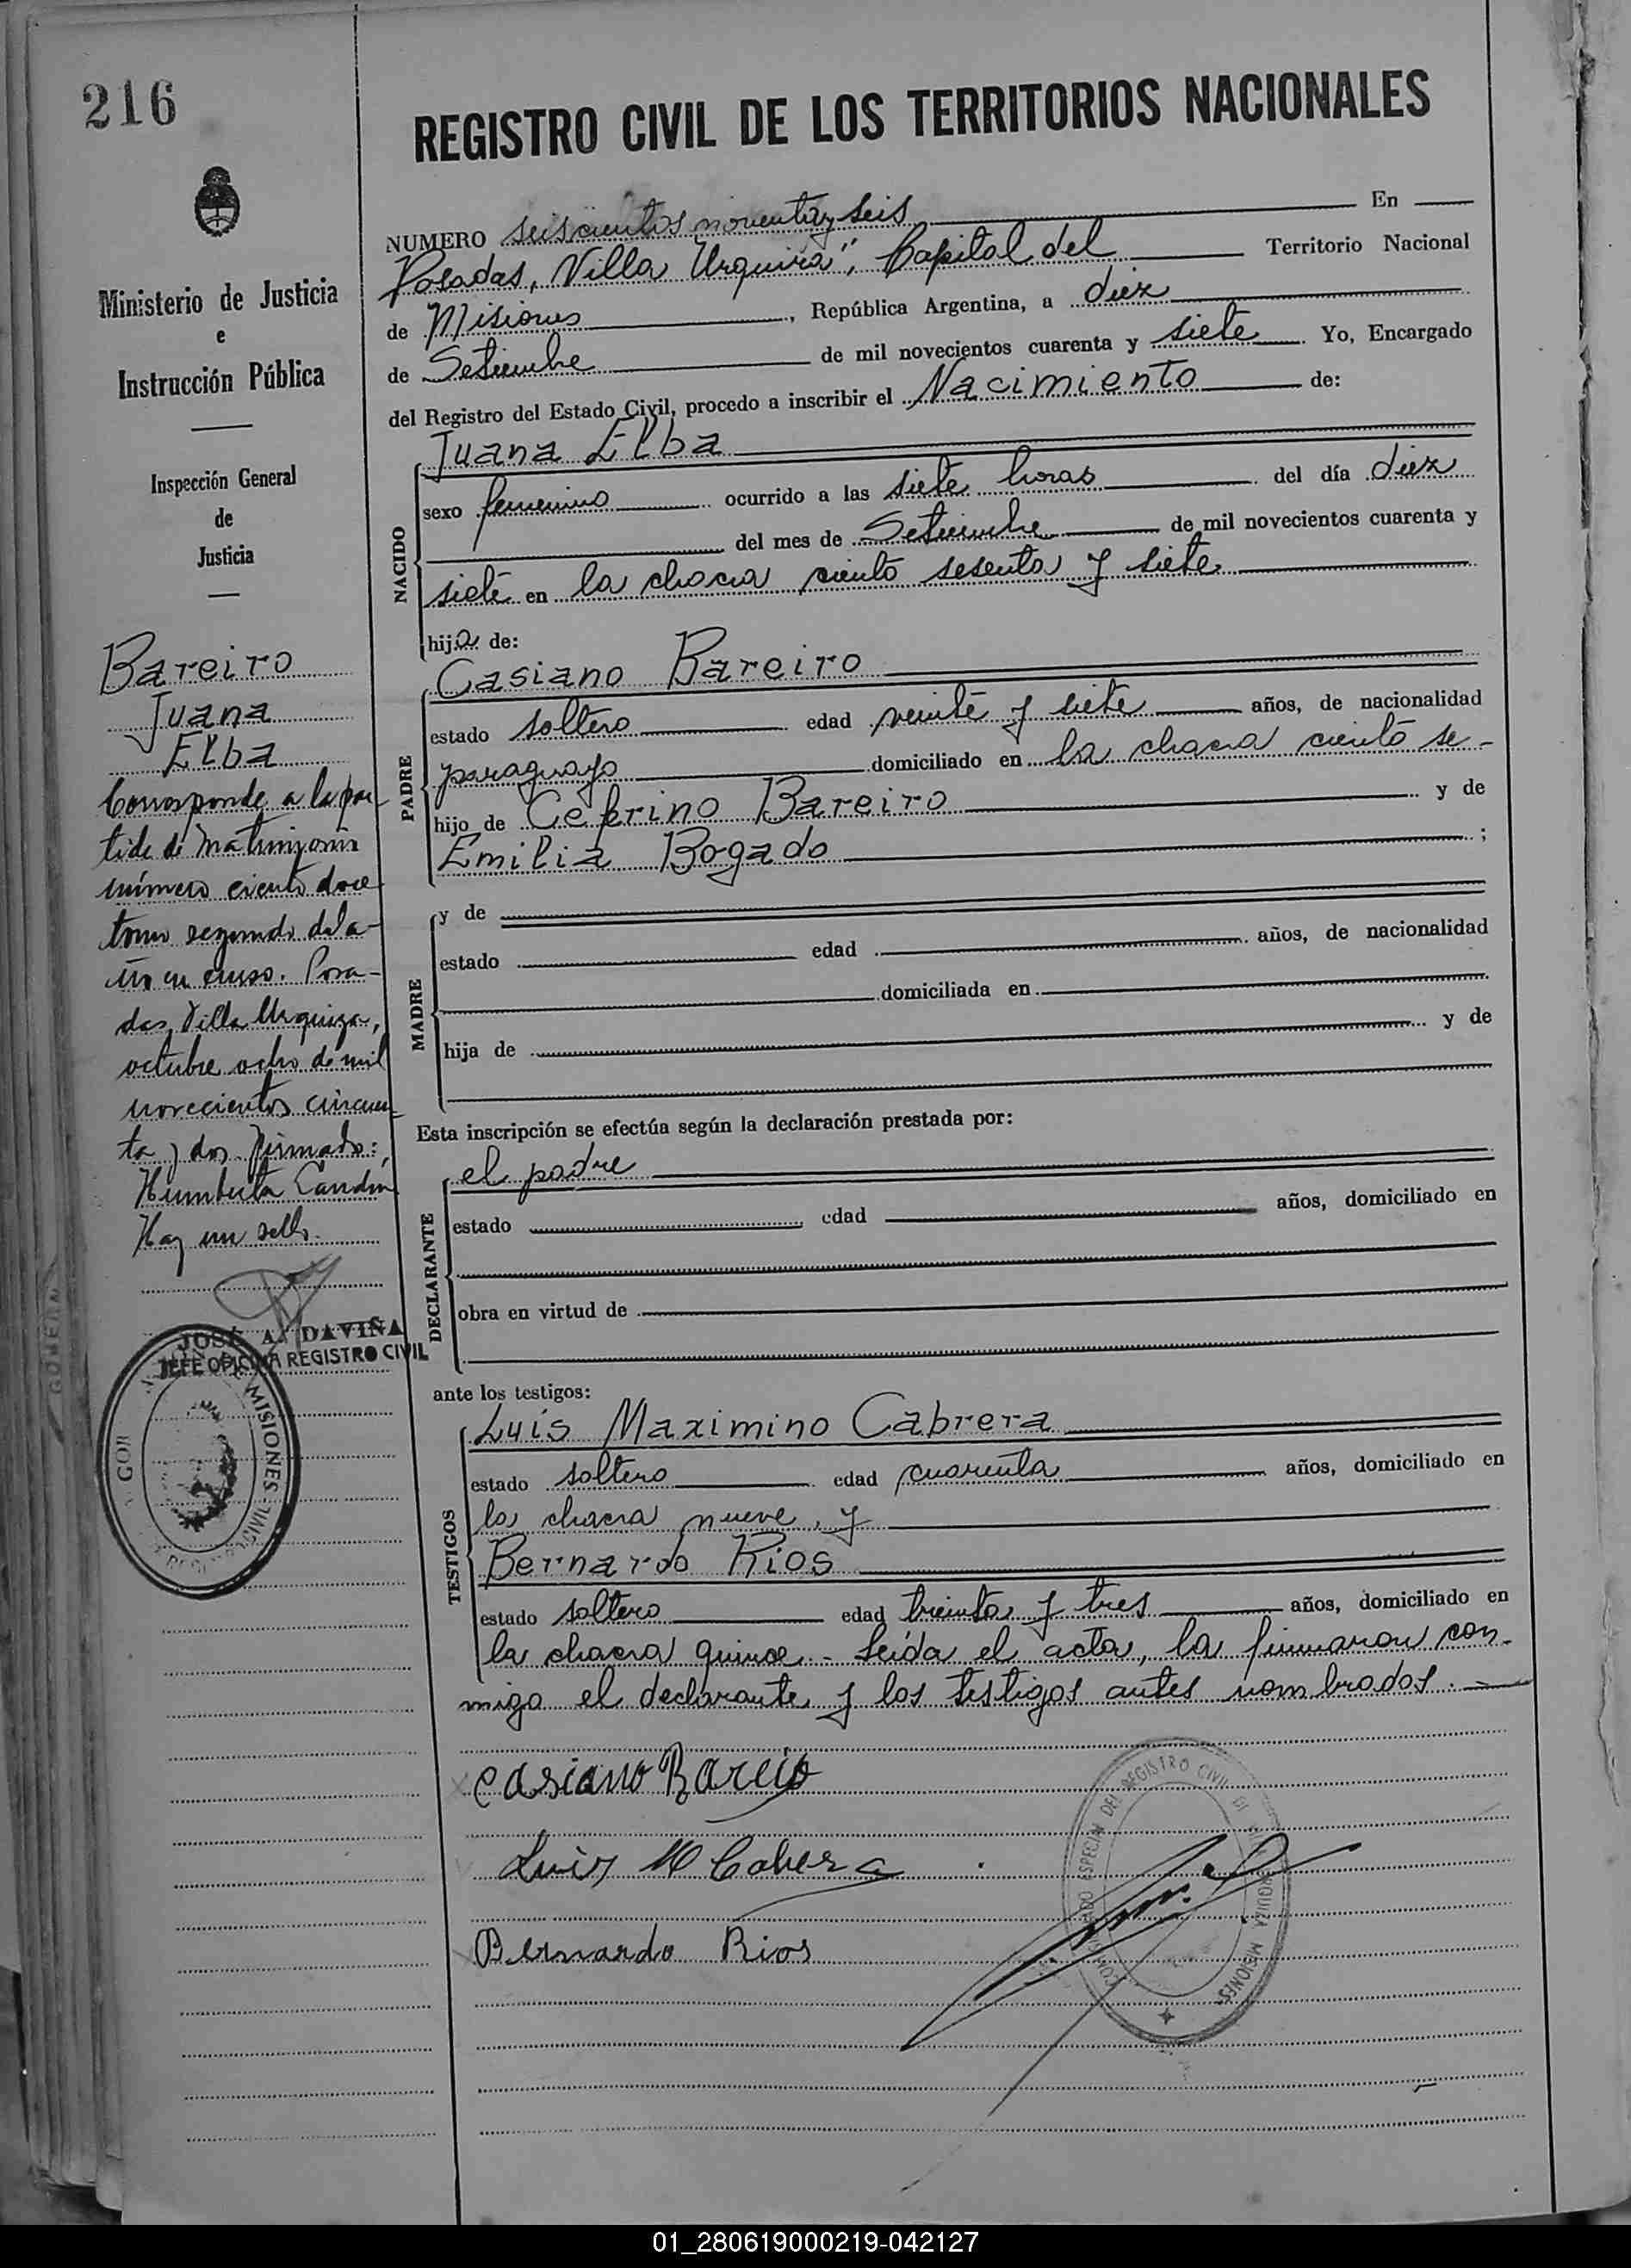 216
REGISTRO CIVIL DE LOS TERRITORIOS NACIONALES
Ministerio de Justicia
e
Instrucción Pública
Inspección General
de
Justicia
NUMERO seiscientos noventa y seis En
Posadas, Villa Urquiza", Capital del Territorio Nacional
de Misiones, República Argentina, a diez
de Setiembre de mil novecientos cuarenta y siete Yo, Encargado
del Registro del Estado Civil, procedo a inscribir el Nacimiento de:
NACIDO
Juana Elba
sexo femenino ocurrido a las siete horas del día diez
del mes de Setiembre de mil novecientos cuarenta y
siete en la chacra ciento sesenta y siete
hija de:
PADRE
Casiano Bareiro
estado soltero edad veinte y siete años, de nacionalidad
paraguayo domiciliado en la chacra ciento se-
hijo de Cefrino Bareiro y de
Emilia Bogado ;
MADRE
y de
estado edad años, de nacionalidad
domiciliada en
hija de y de
Esta inscripción se efectúa según la declaración prestada por:
DECLARANTE
el padre
estado edad años, domiciliado en
obra en virtud de
ante los testigos:
TESTIGOS
Luis Maximino Cabrera
estado soltero edad cuarenta años, domiciliado en
la chacra nueve, y
Bernardo Rios
estado soltero edad treinta y tres años, domiciliado en
la chacra quince - Leída el acta, la firmaron con-
migo el declarante y los testigos antes nombrados.
Casiano Bareiro
Luis M Cabrera
Bernardo Rios
Bareiro
Juana
Elba
Corresponde a la par-
tida de Matrimonio
número ciento doce
tomo segundo del a-
ño en curso. Posa-
das, Villa Urquiza,
octubre ocho de mil
novecientos cincuen-
ta y dos. Firmado:
Humberto
Hay un sello.
JOSÉ A. DAVIÑA
JEFE OFICINA REGISTRO CIVIL
MISIONES
REGISTRO CIVIL
MISIONES
01_280619000219-042127